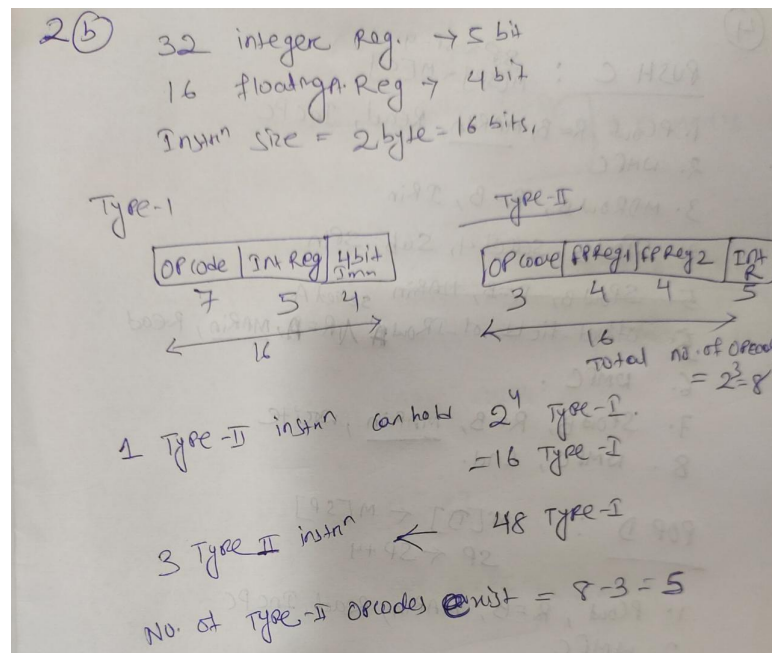 2 b 32 integer Reg. → 5 bit
16 floating P. Reg → 4 bit
Instrⁿ size = 2 byte = 16 bits.
Type-1 Type-II
OP code Int Reg 4bit Imn
OP code FPReg1 FPReg2 Int R
7 5 4 3 4 4 5
16 16
Total no. of opcod
= 2³=8
1 Type-II instrⁿ can hold 2⁴ Type-I.
=16 Type-I
3 Type II instrⁿ ← 48 Type-I
No. of Type-II opcodes exist = 8-3=5